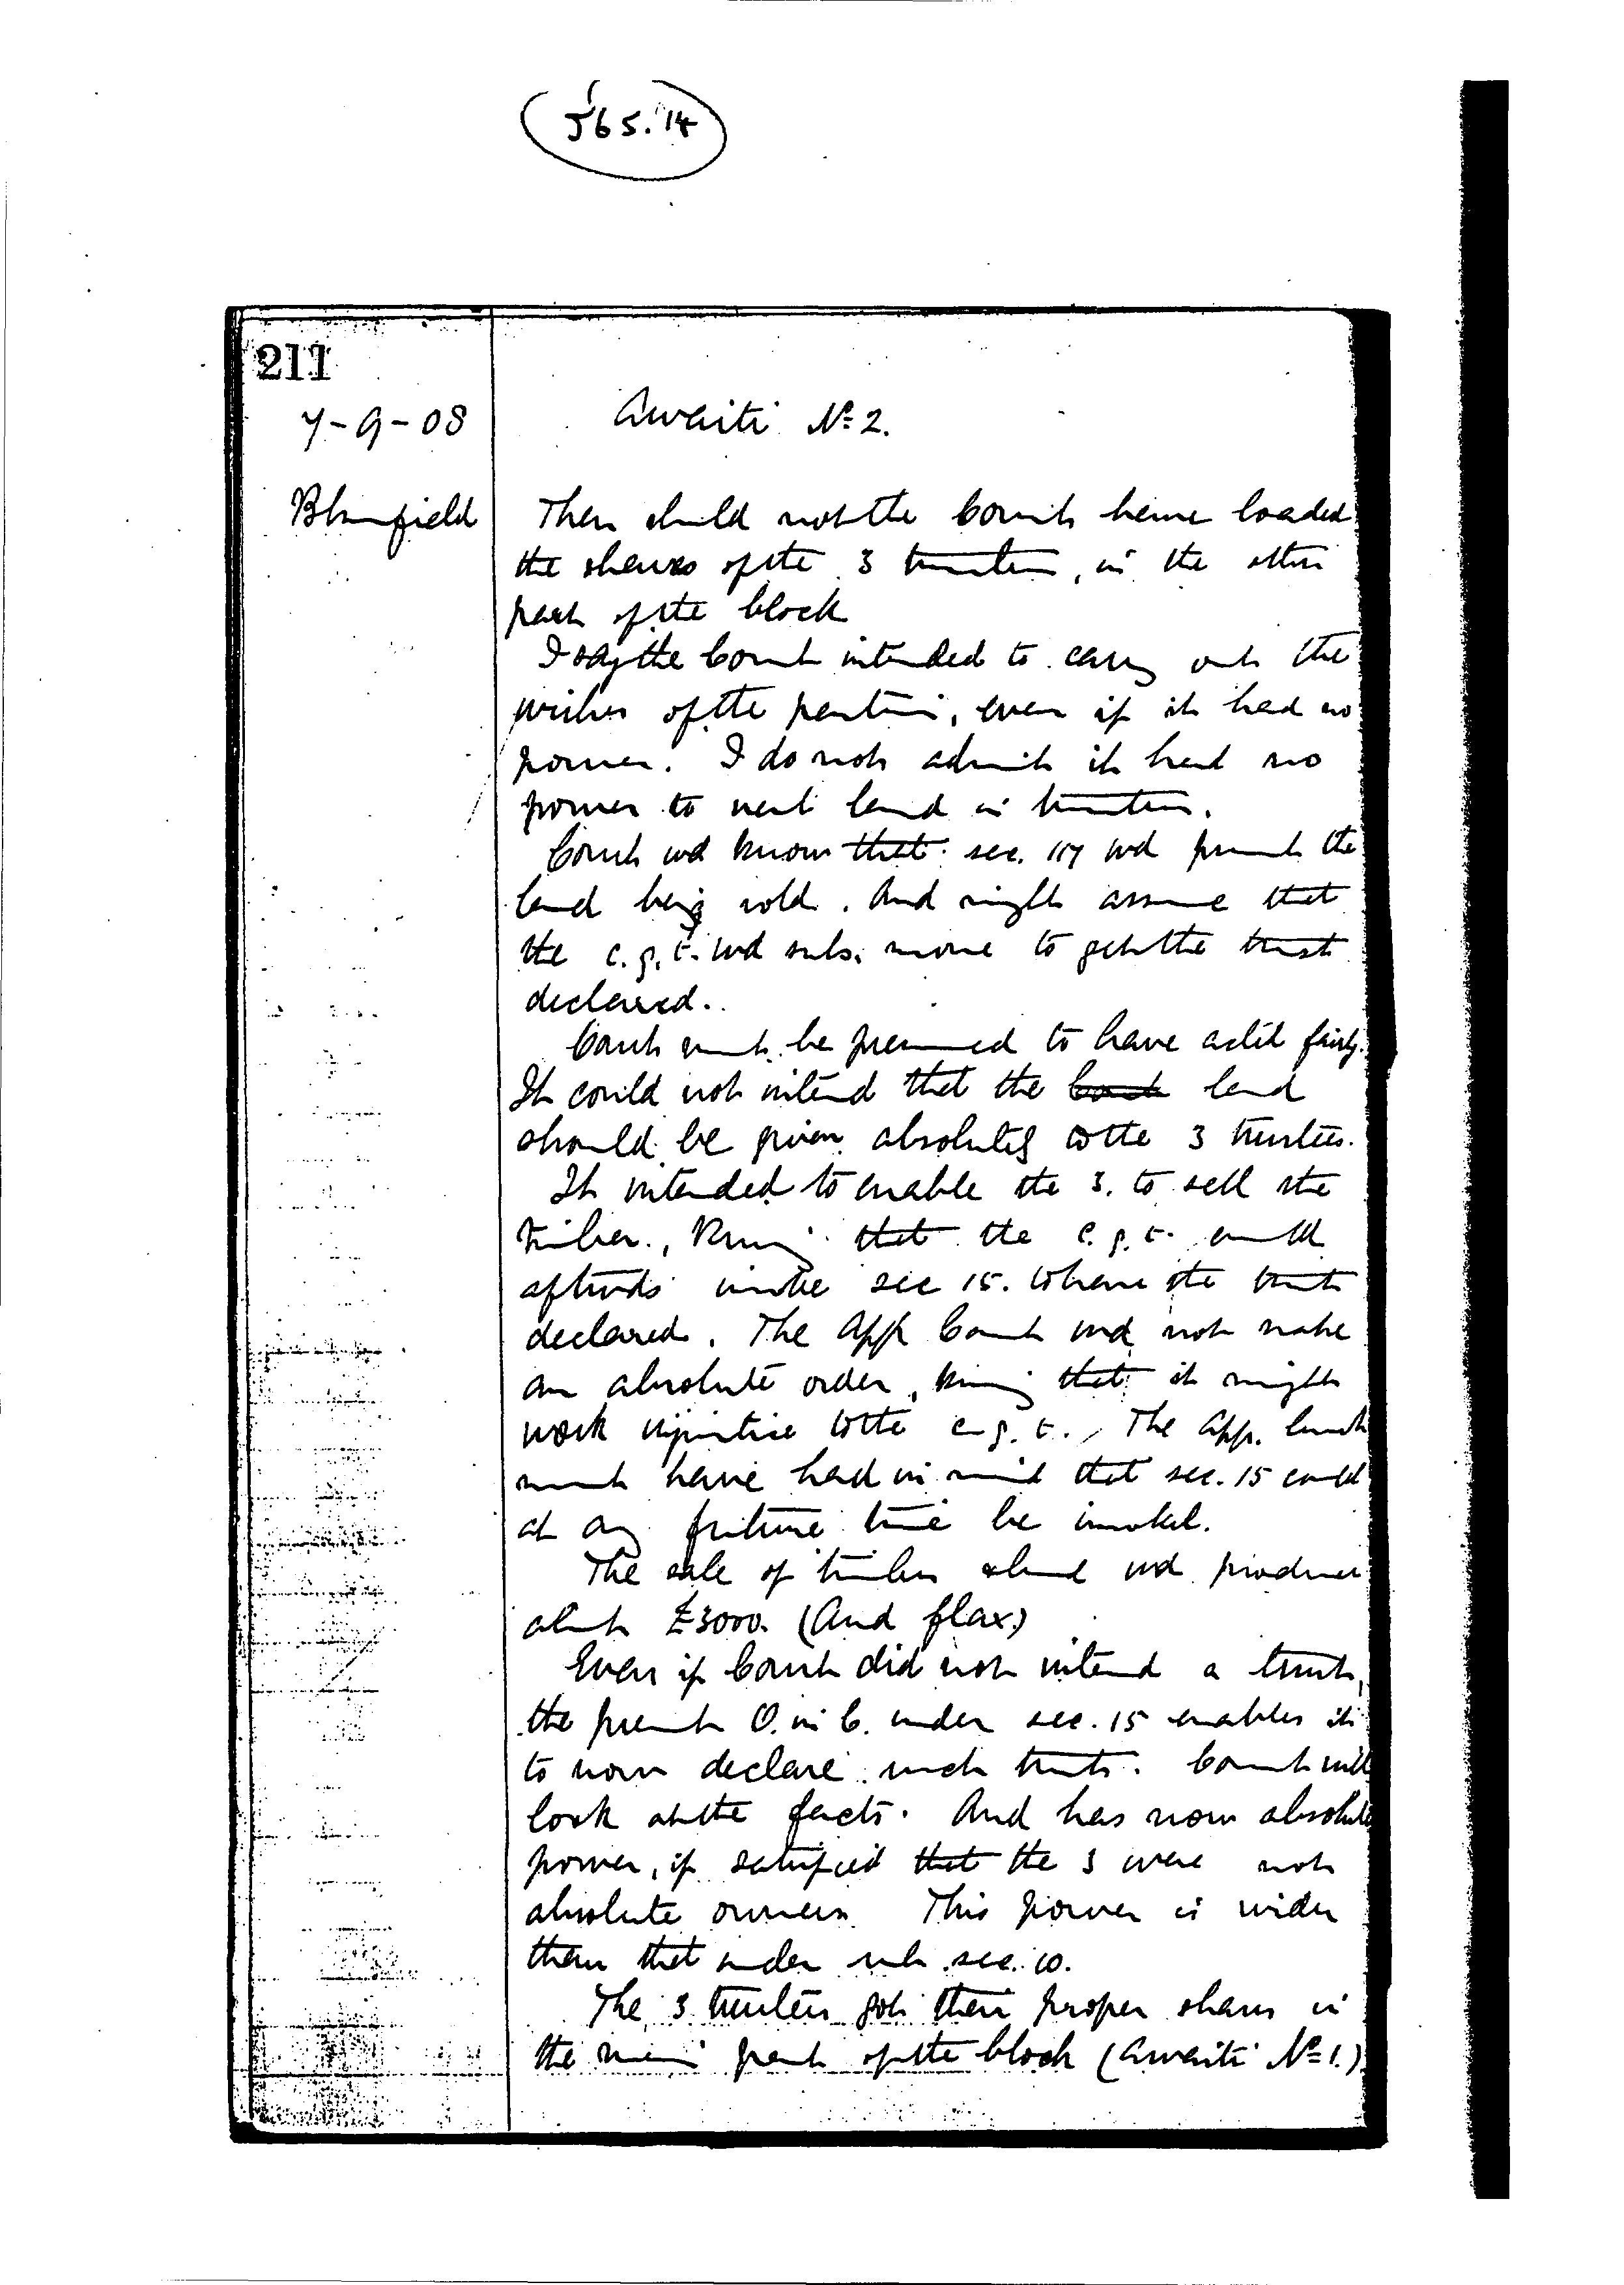 J65.14
211
7-9-08
Awaiti No 2.
Blomfield
Then should not the Court have loaded
the shares of the 3 trustees, in the other
part of the block
I say the Court intended to carry out the
wishes of the parties, even if it had no
power. I do not admit it had no
power to vest land in trustees.
Court wd know that sec. 117 wd prevent the
land being sold. And might assume that
the c.q.t. wd subs. move to get the trust
declared.
Court must be presumed to have acted fairly.
It could not intend that the land
should be given absolutely to the 3 trustees.
It intended to enable the 3. to sell the
timber, knowing that the c.q.t. could
aftwds invoke sec 15. to have the trust
declared. The App Court wd not make
an absolute order, knowing that it might
work injustice to the c.q.t., The App. Court
must have had in mind that sec. 15 could
at any future time be invoked.
The sale of timber alone wd produce
about £3000. (And flax)
Even if Court did not intend a trust,
the present O. in C. under sec. 15 enables it
to now declare such trust. Court will
look at the facts. And has now absolute
power, if satisfied that the 3 were not
absolute owners This power is wider
than that under sub. sec. 10.
The 3 trustees got their proper shares in
the main part of the block (Awaiti No 1.)